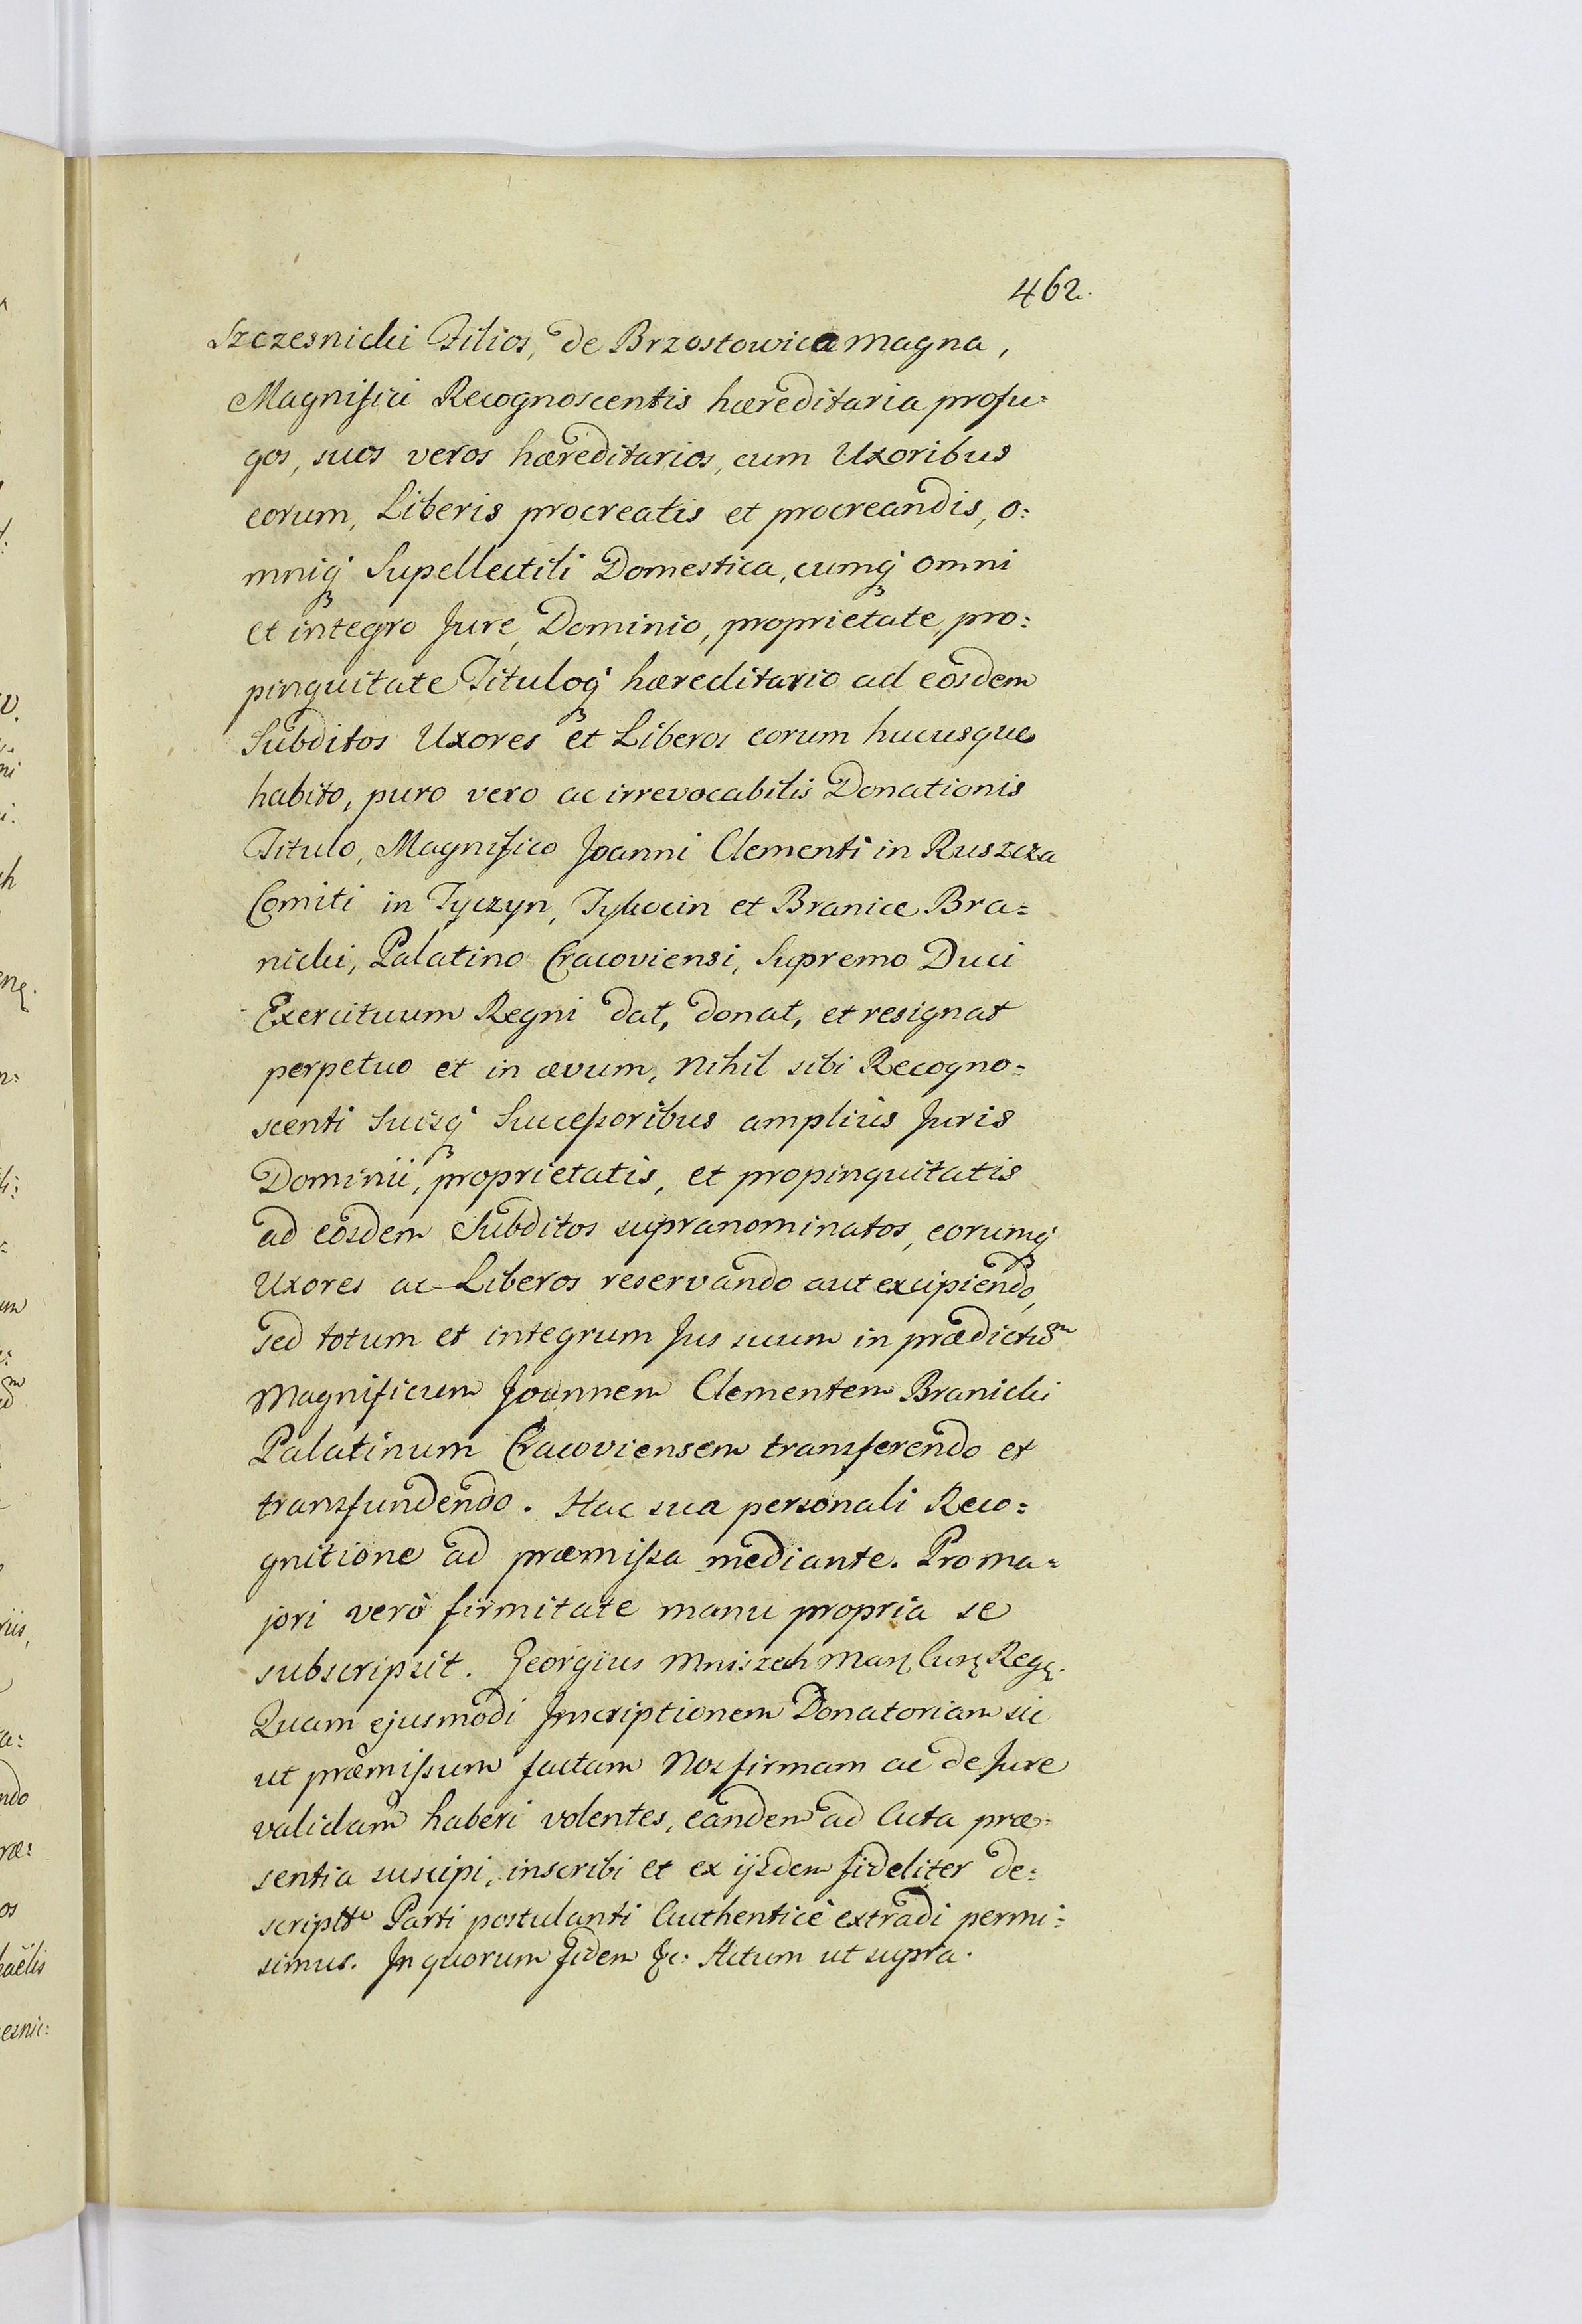 462.
Szczesnicki Filios, de Brzostowica magna,
Magnifici Recognoscentis hæreditaria profu:
gos, suos veros hæreditarios, cum Uxoribus
eorum, Liberis procreatis et procreandis, o:
mniq Supellectili Domestica, cumq omni
et integro Jure, Dominio, proprietate, pro:
pinquitate Tituloq hæreditario ad eosdem
Subditos Uxores et Liberos eorum hucusque
habito, puro vero ac irrevocabilis Donationis
Titulo, Magnifico Joanni Clementi in Ruszcza
Comiti in Tyczyn, Tykocin et Branice Bra=
nicki, Palatino Cracoviensi, Supremo Duci
Exercituum Regni dat, donat, et resignat
perpetuo et in ævum, nihil sibi Recogno=
scenti Suisq Sucessoribus amplius Juris
Dominii, proprietatis, et propinquitatis
ad eosdem Subditos supranominatos, eorumq
Uxores ac Liberos reservando aut excipiendo,
sed totum et integrum Jus suum in prædictum
Magnificum Joannem Clementem Branicki
Palatinum Cracoviensem transferendo et
transfundendo. Hac sua personali Reco=
gnitione ad præmissa mediante. Pro ma=
jori verò firmitate manu propria se
subscripsit. Georgius Mniszech Mar: Cur: Reg:
Quam ejusmodi Inscriptionem Donatoriam sic
ut præmissum factam Nos firmam ac de Jure
validam haberi volentes, eandem ad Acta præ=
sentia suscipi, inscribi et ex ijsdem fideliter de=
script Parti postulanti Authenticè extradi permi=
simus. In quorum fidem &c: Actum ut supra.